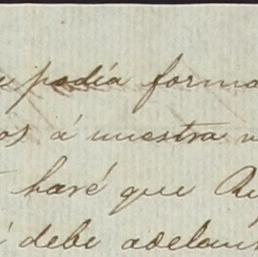 podía forma
os á nuestra
haré que
debe adelan